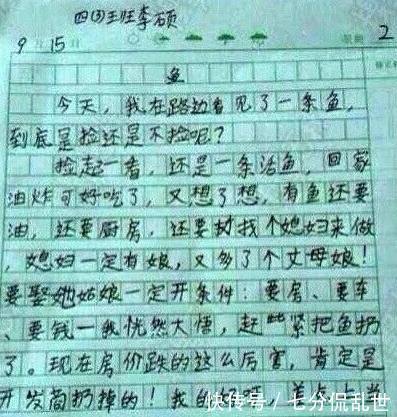 四(3)班李硕
9月15日 星期2
鱼
今天,我在路边看见了一条鱼,
到底是捡还是不捡呢?
捡起一看,还是一条活鱼,回家
油炸可好吃了,又想了想,有鱼还要
油,还要厨房,还要找个媳妇来做
,媳妇一定有娘,又多了个丈母娘!
要娶她姑娘一定开条件:要房、要车
、要钱一我恍然大悟,赶紧把鱼扔
了。现在房价跌的这么厉害,肯定是
开发商扔掉的!我的好险,差点上当
快传号/七分侃乱世